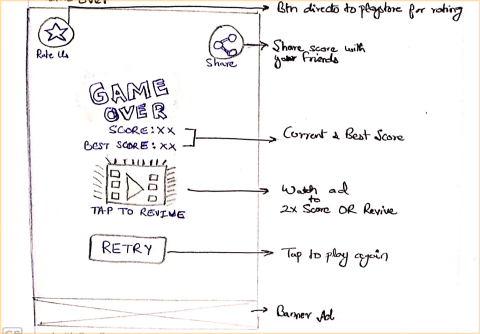 Over
Btn directs to playstore for rating
Rate Us
Share
Share score with
your friends
GAME
OVER
SCORE: XX
BEST SCORE: XX
Current & Best Score
TAP TO REVIVE
Watch ad
to
2x Score OR Revive
RETRY
Tap to play again
Banner Ad
CS